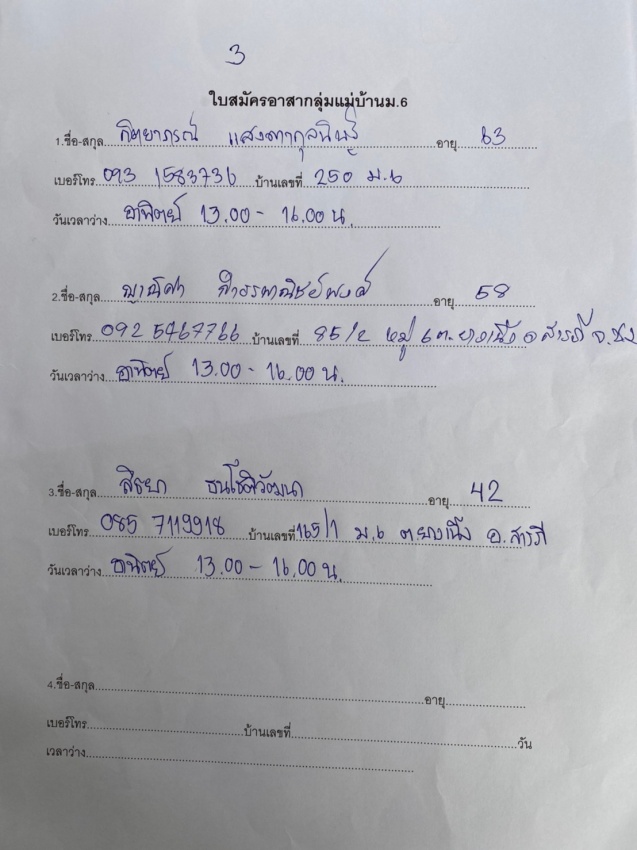 3
ใบสมัครอาสากลุ่มแม่บ้านม.6
1.ชื่อ-สกุล กิตยาภรณ์ อายุ 63
เบอร์โทร 093 1583736 บ้านเลขที่ 250 ม.6
วันเวลาว่าง อาทิตย์ 13.00 - 16.00 น.
2.ชื่อ-สกุล ญาณิศา อายุ 58
เบอร์โทร 092 5467766 บ้านเลขที่ 85/2 หมู่ 6 ต.ยางเนิ้ง อ สารภี จ.ชม
วันเวลาว่าง อาทิตย์ 13.00 - 16.00 น.
3.ชื่อ-สกุล สิริยา ธนโชติวัฒนา อายุ 42
เบอร์โทร 085 7119918 บ้านเลขที่ 165/1 ม.6 ต ยางเนิ้ง อ.สารภี
วันเวลาว่าง อาทิตย์ 13.00 - 16.00 น.
4.ชื่อ-สกุล อายุ
เบอร์โทร บ้านเลขที่ วัน
เวลาว่าง